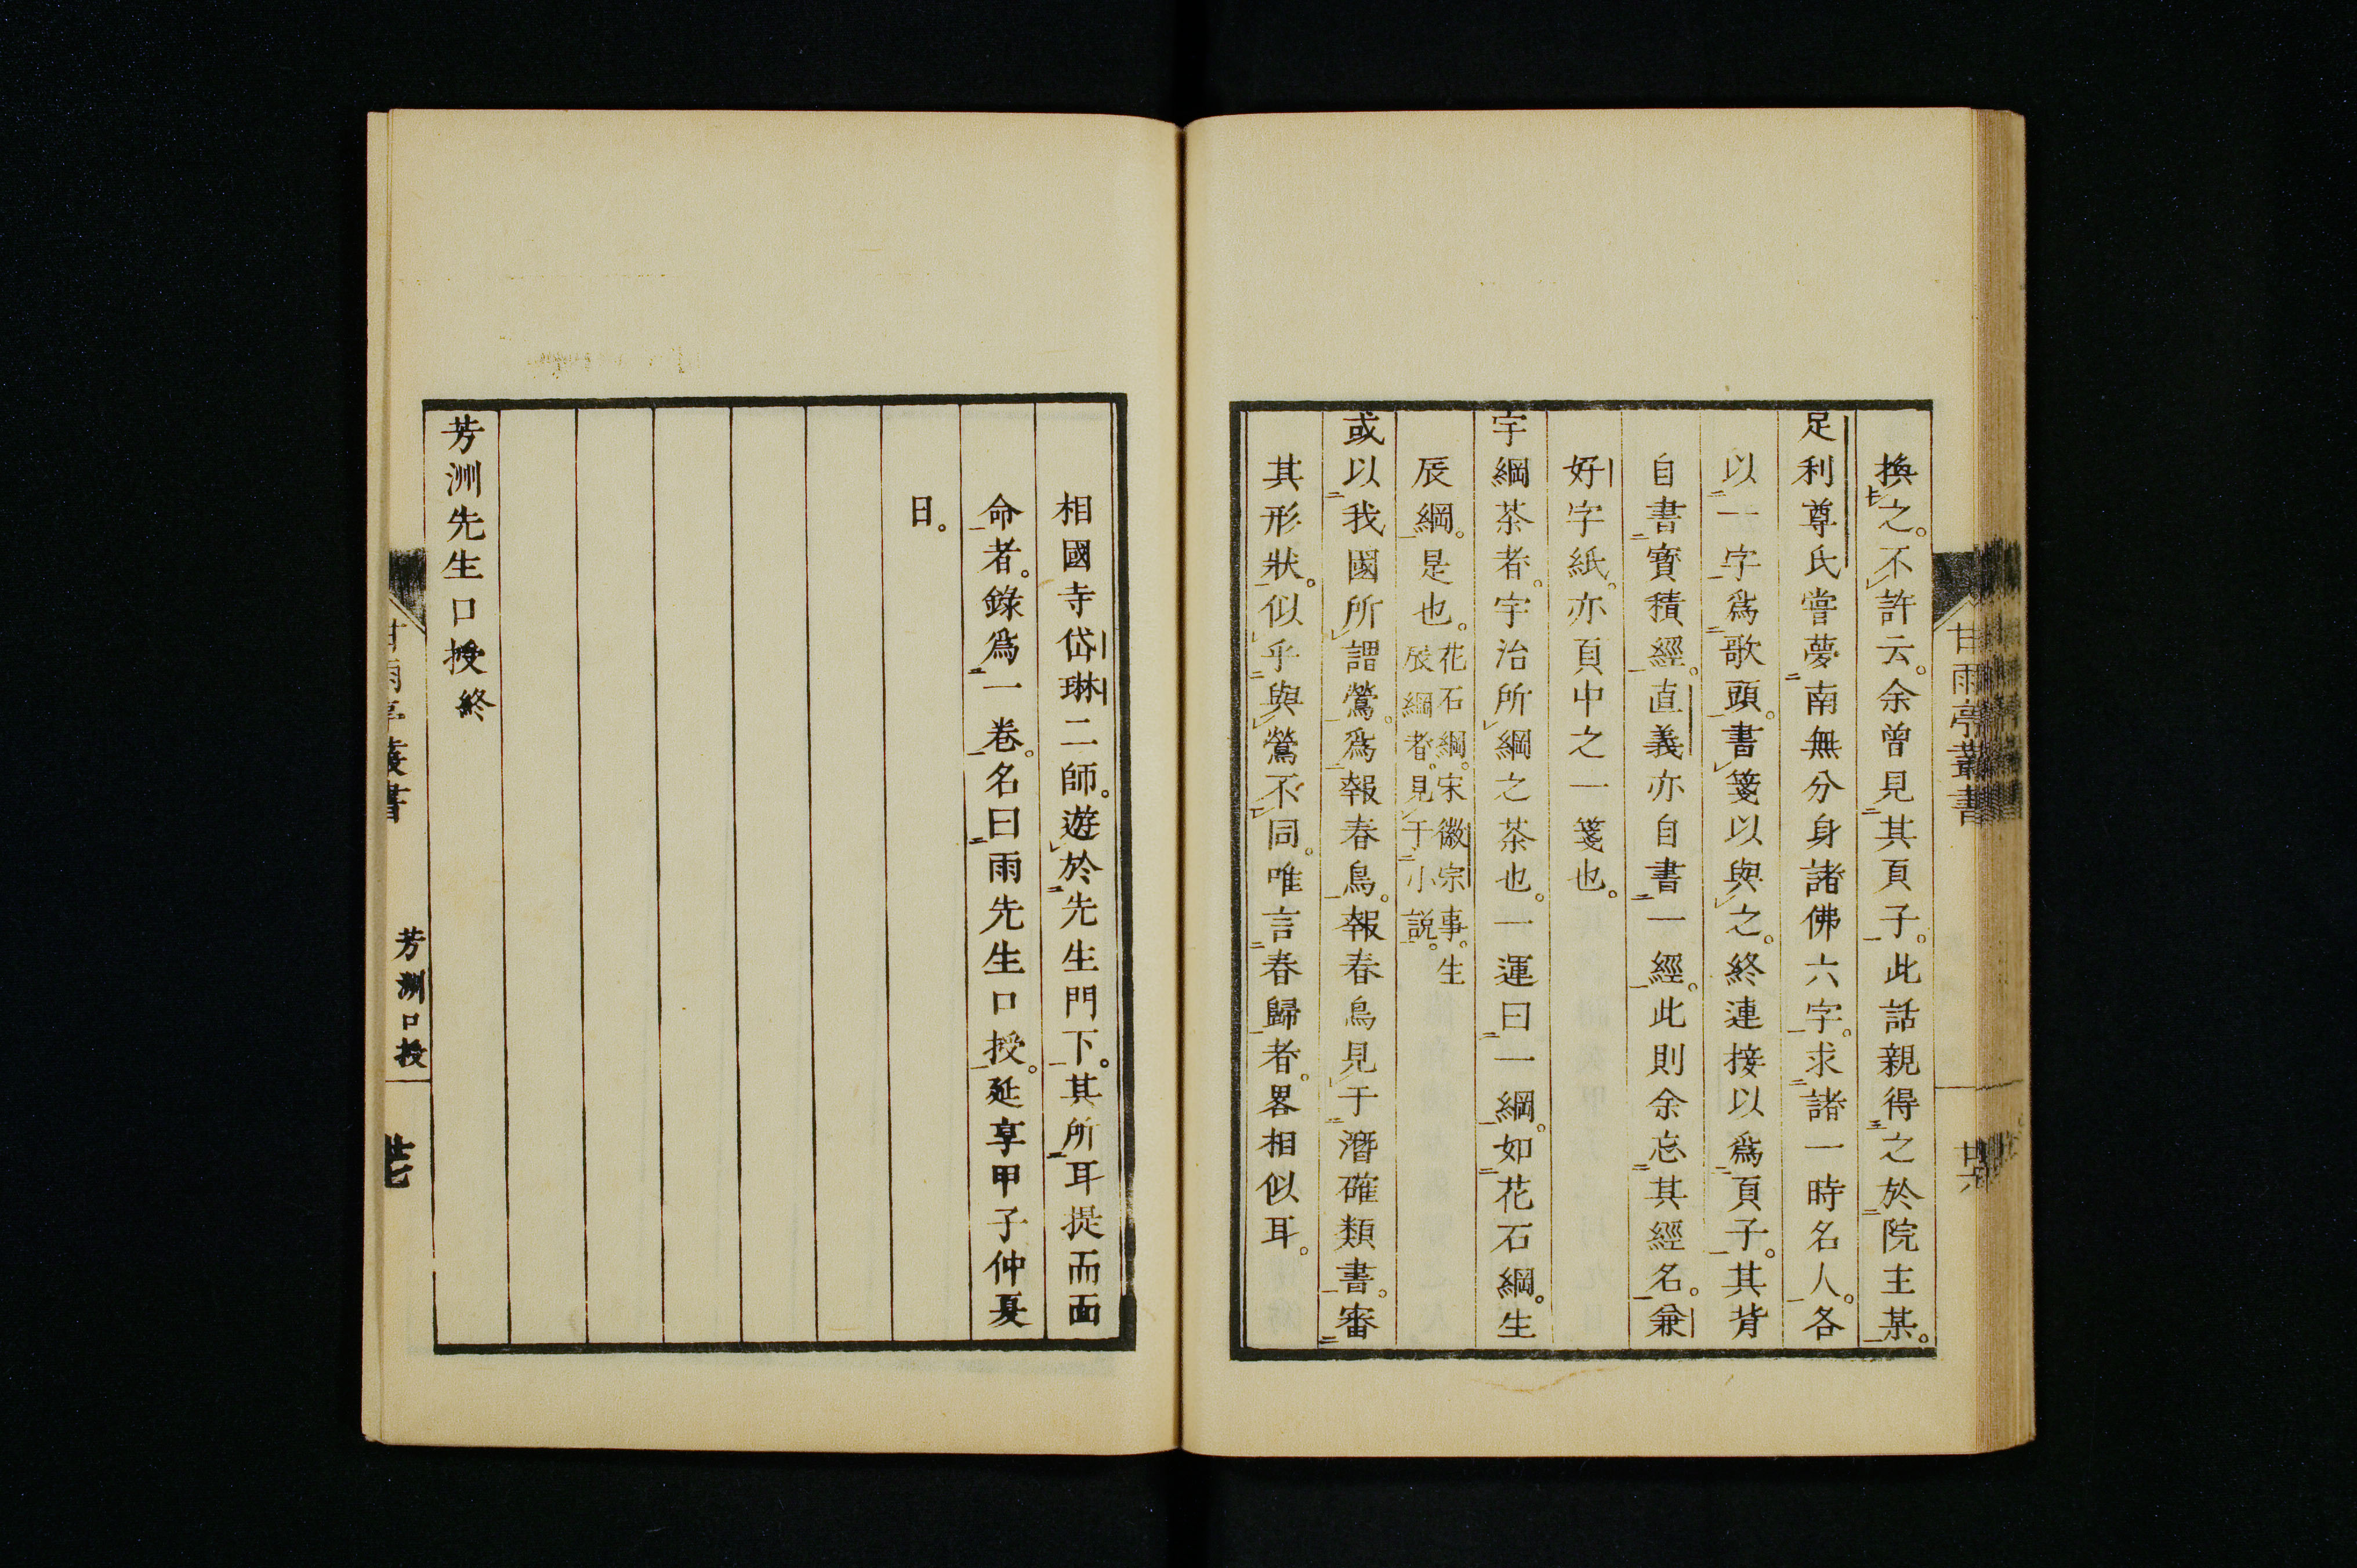 換之。不許云。余曾見其頁子。此話親得之於院主某。
足利尊氏嘗夢南無分身諸佛六字。求諸一時名人。各
以一字爲歌頭。書箋以與之。終連接以爲頁子。其背
自書寳積經。直義亦自書一經。此則余忘其經名。兼
好字紙。亦頁中之一箋也。
宇綱茶者。宇治所綱之茶也。一運曰一綱。如花石綱。生
辰綱。是也。花石綱。宋徽宗事。生
辰綱者。見于小説。
或以我國所謂鶯。爲報春鳥。報春鳥見于潛確類書。審
其形狀。似乎與鶯不同。唯言春歸者。畧相似耳。
甘雨亭叢書
廿六
相國寺岱琳二師。遊於先生門下。其所耳提而面
命者。錄爲一卷。名曰雨先生口授。延享甲子仲夏
日。
芳洲先生口授終
甘雨亭叢書 芳洲口授 廿七